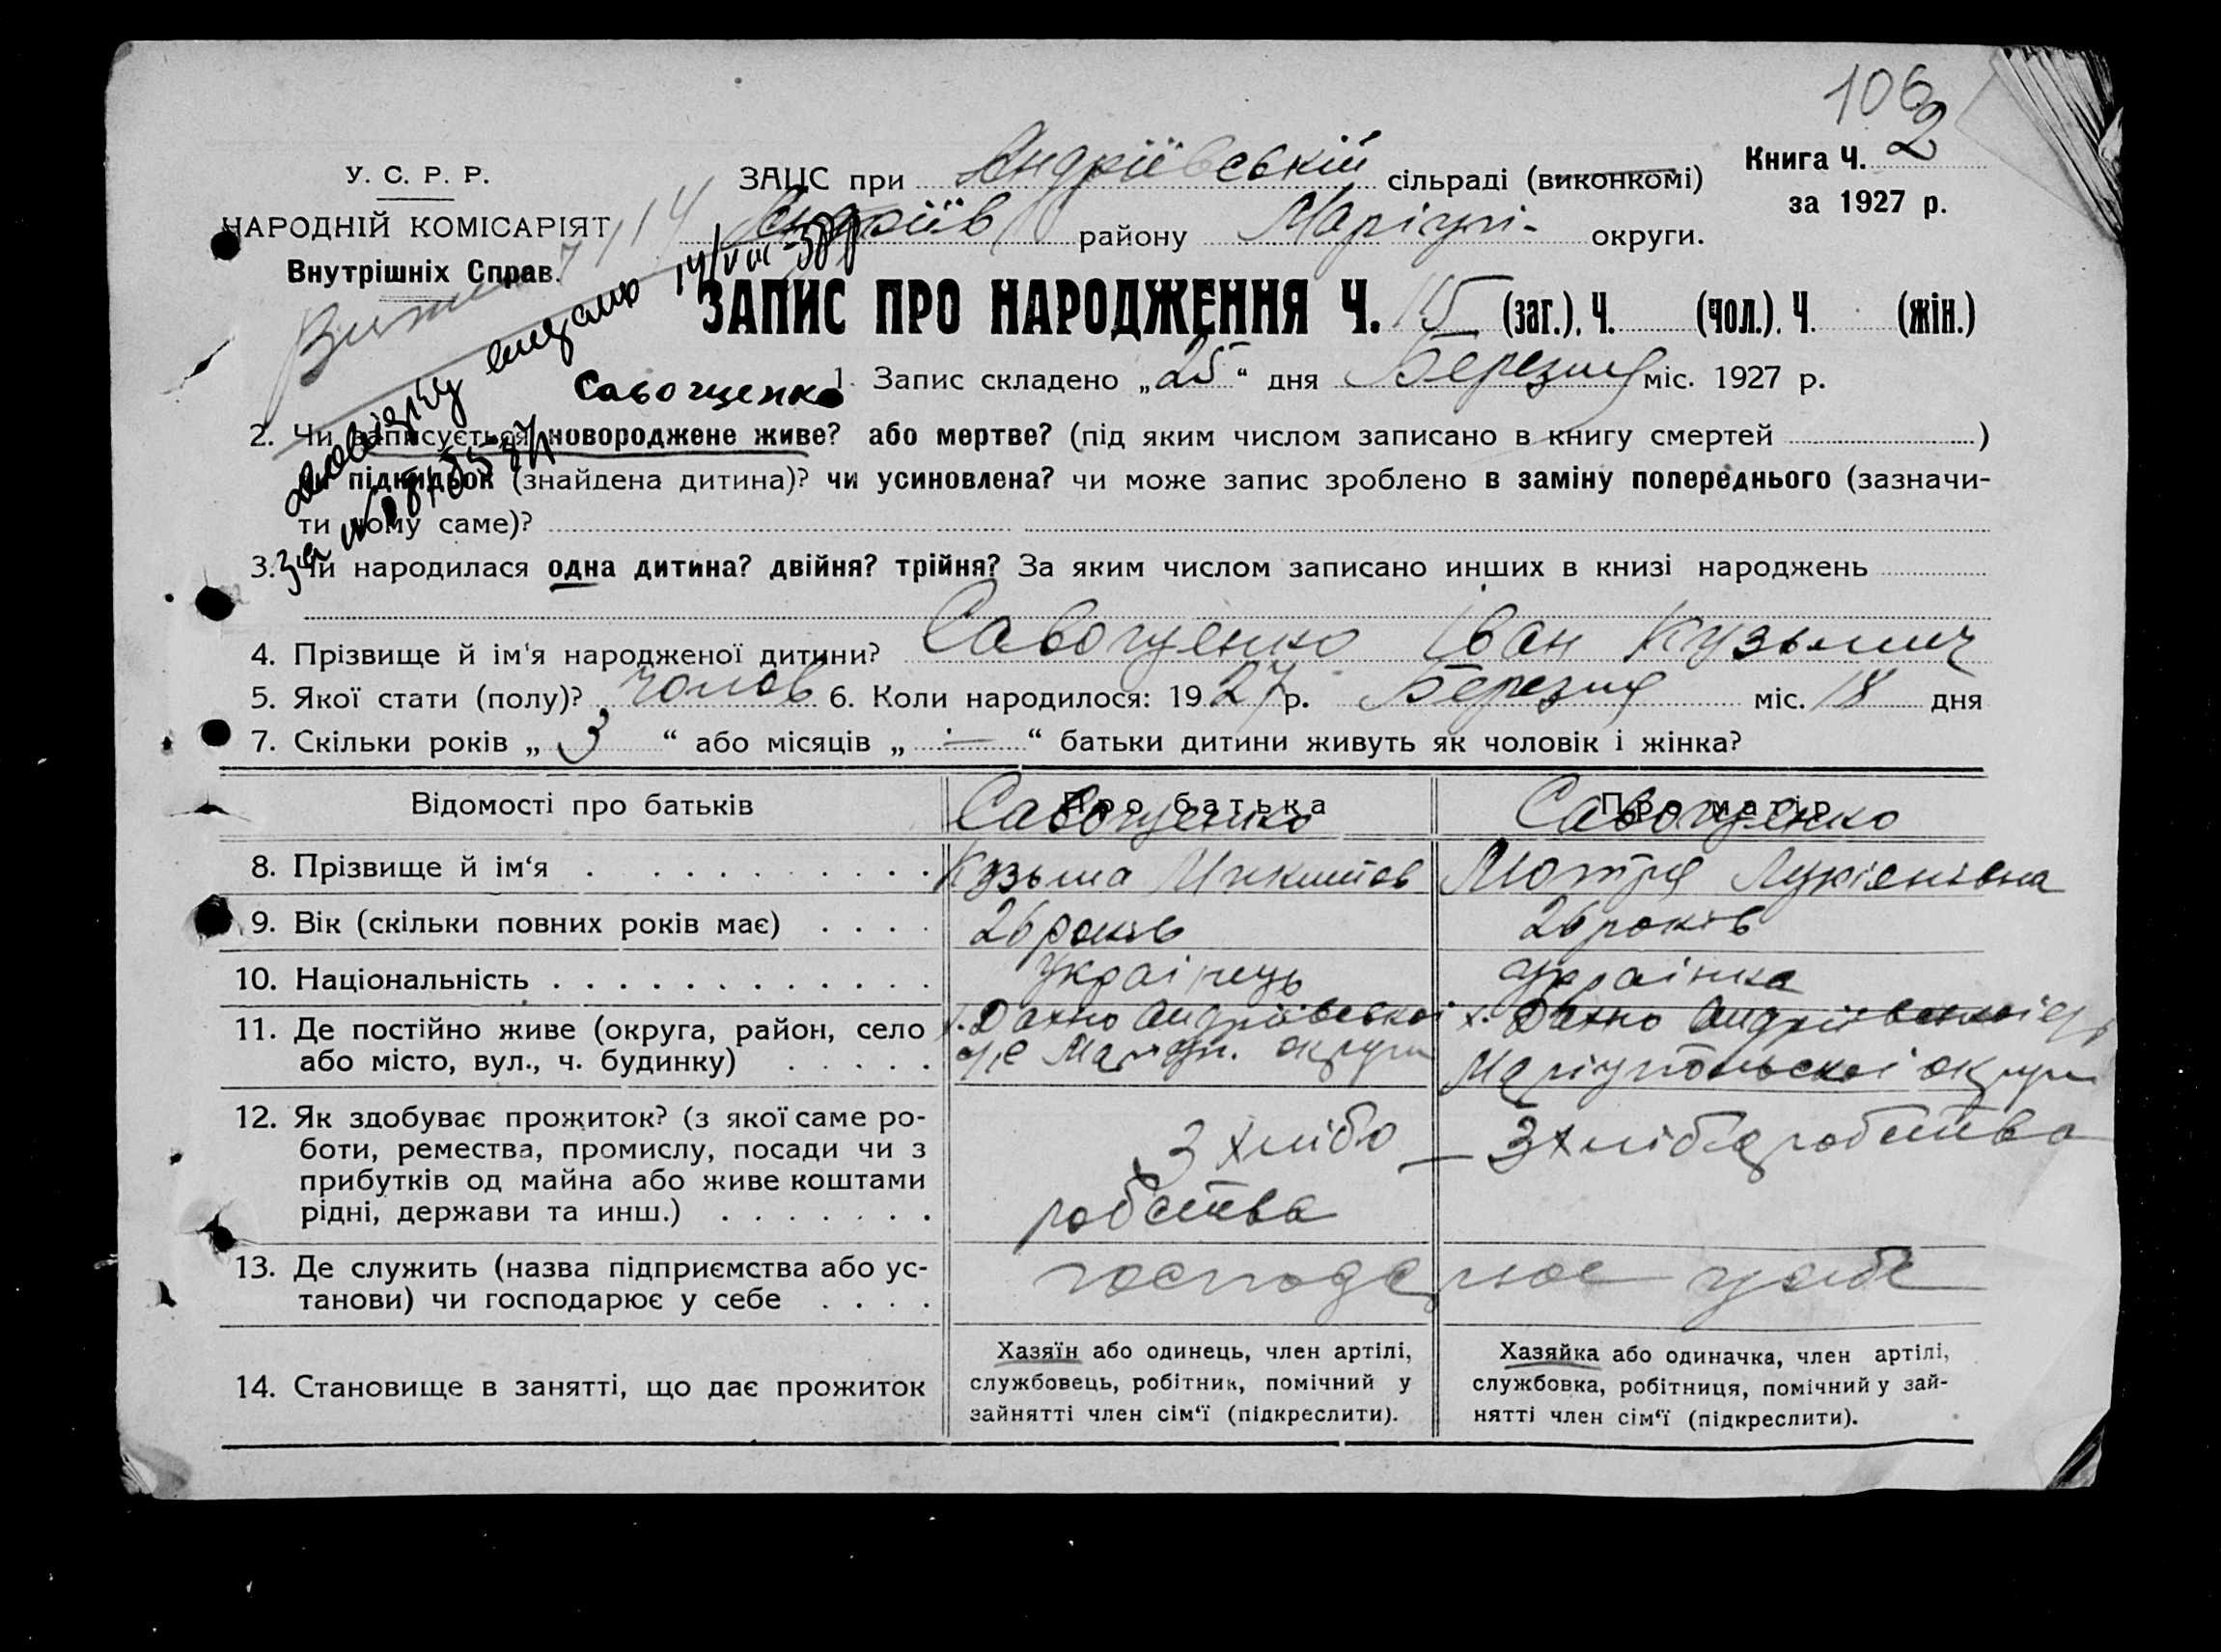 106
2
У. С. Р. Р.
НАРОДНІЙ КОМІСАРІЯТ
Внутрішніх Справ.
ЗАЦС при Андріївській сільраді (виконкомі)
Андріїв району Маріупі- округи.
Книга Ч.
за 1927 р.
ЗАПИС ПРО НАРОДЖЕННЯ Ч. 15 (заг.), Ч. (чол.), Ч. (жін.)
Савощенко
1. Запис складено „25“ дня Березня міс. 1927 р.
2. Чи записується новороджене живе? або мертве? (під яким числом записано в книгу смертей )
чи підкидьок (знайдена дитина)? чи усиновлена? чи може запис зроблено в заміну попереднього (зазначи-
ти чому саме)?
3. Чи народилася одна дитина? двійня? трійня? За яким числом записано инших в книзі народжень
4. Прізвище й ім'я народженої дитини? Савощенко Іван Кузьмич
5. Якої стати (полу)? чолов 6. Коли народилося: 1927 р. Березня міс. 18 дня
7. Скільки років „ 3 “ або місяців „ — “ батьки дитини живуть як чоловік і жінка?
Відомості про батьків Про батька Про матір
Савощенко Савощенко
8. Прізвище й ім‘я Кузьма Микитов Мотря Лукіянівна
9. Вік (скільки повних років має) 26 років 26 років
10. Національність Українець Українка
11. Де постійно живе (округа, район, село х. Дахно Андріївської х. Дахно Андріївської
або місто, вул., ч. будинку) округи Маріупольської округи
12. Як здобуває прожиток? (з якої саме ро-
боти, ремества, промислу, посади чи з
прибутків од майна або живе коштами
рідні, держави та инш.)
З хлібо
робства
З хлібаробства
13. Де служить (назва підприємства або ус-
танови) чи господарює у себе
господарює у себе
14. Становище в занятті, що дає прожиток
Хазяїн або одинець, член артілі,
службовець, робітник, помічний у
зайнятті член сім‘ї (підкреслити).
Хазяйка або одиначка, член артілі,
службовка, робітниця, помічний у зай-
нятті член сім‘ї (підкреслити).